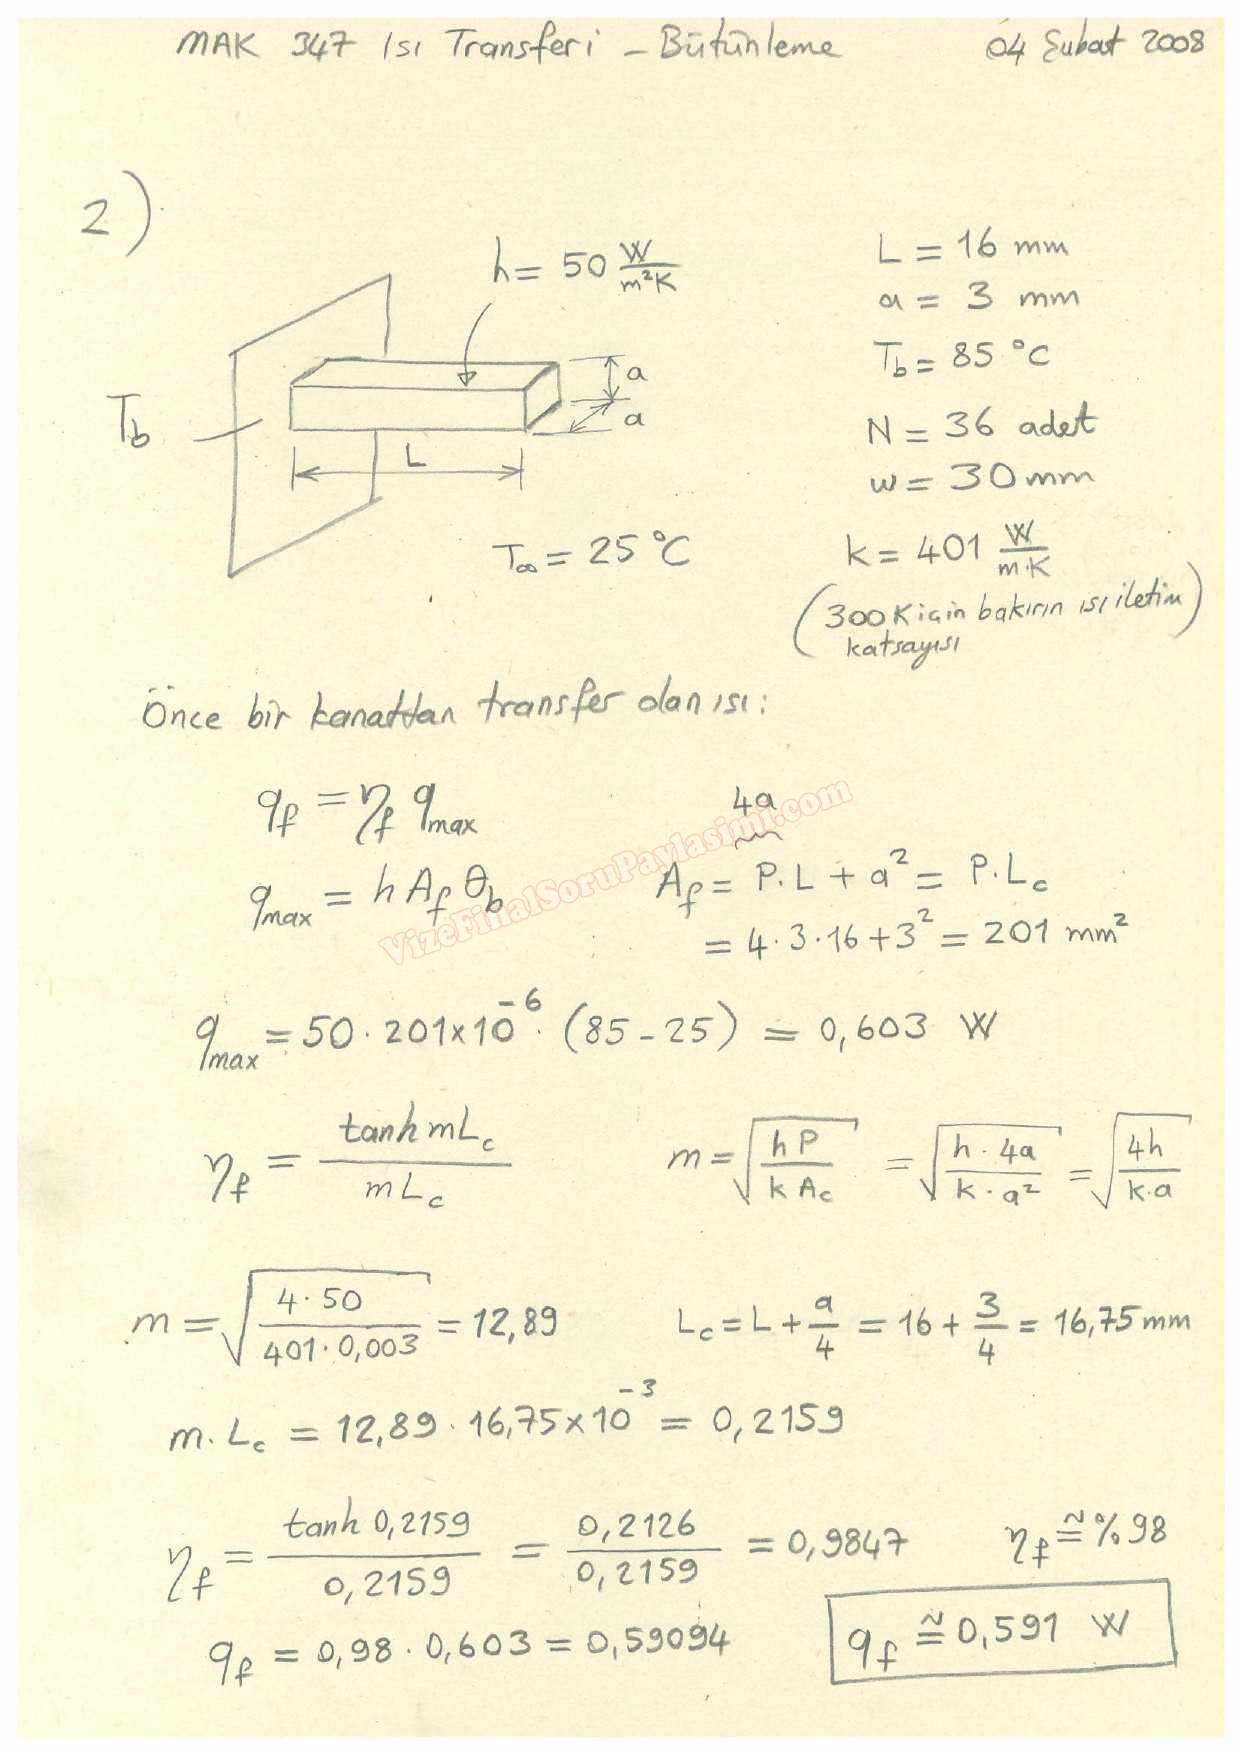 MAK 347 Isı Transferi - Bütünleme 04 Şubat 2008
2)
h = 50 W/m²K
L = 16 mm
a = 3 mm
T_b = 85 °C
N = 36 adet
w = 30 mm
k = 401 W/m·K
(300K için bakırın ısı iletim katsayısı)
T_b
a
a
L
T_∞ = 25 °C
Önce bir kanattan transfer olan ısı:
q_f = η_f q_max
q_max = h A_f θ_b
4a
A_f = P.L + a² = P.L_c
= 4·3·16 + 3² = 201 mm²
VizeFinalSoruPaylasimi.com
q_max = 50·201x10⁻⁶·(85-25) = 0,603 W
η_f = tanh mL_c / mL_c
m = √(hP / kA_c) = √(h·4a / k·a²) = √(4h / k.a)
m = √(4·50 / 401·0,003) = 12,89
L_c = L + a/4 = 16 + 3/4 = 16,75 mm
m.L_c = 12,89·16,75x10⁻³ = 0,2159
η_f = tanh 0,2159 / 0,2159 = 0,2126 / 0,2159 = 0,9847
η_f ≅ %98
q_f = 0,98·0,603 = 0,59094
q_f ≅ 0,591 W